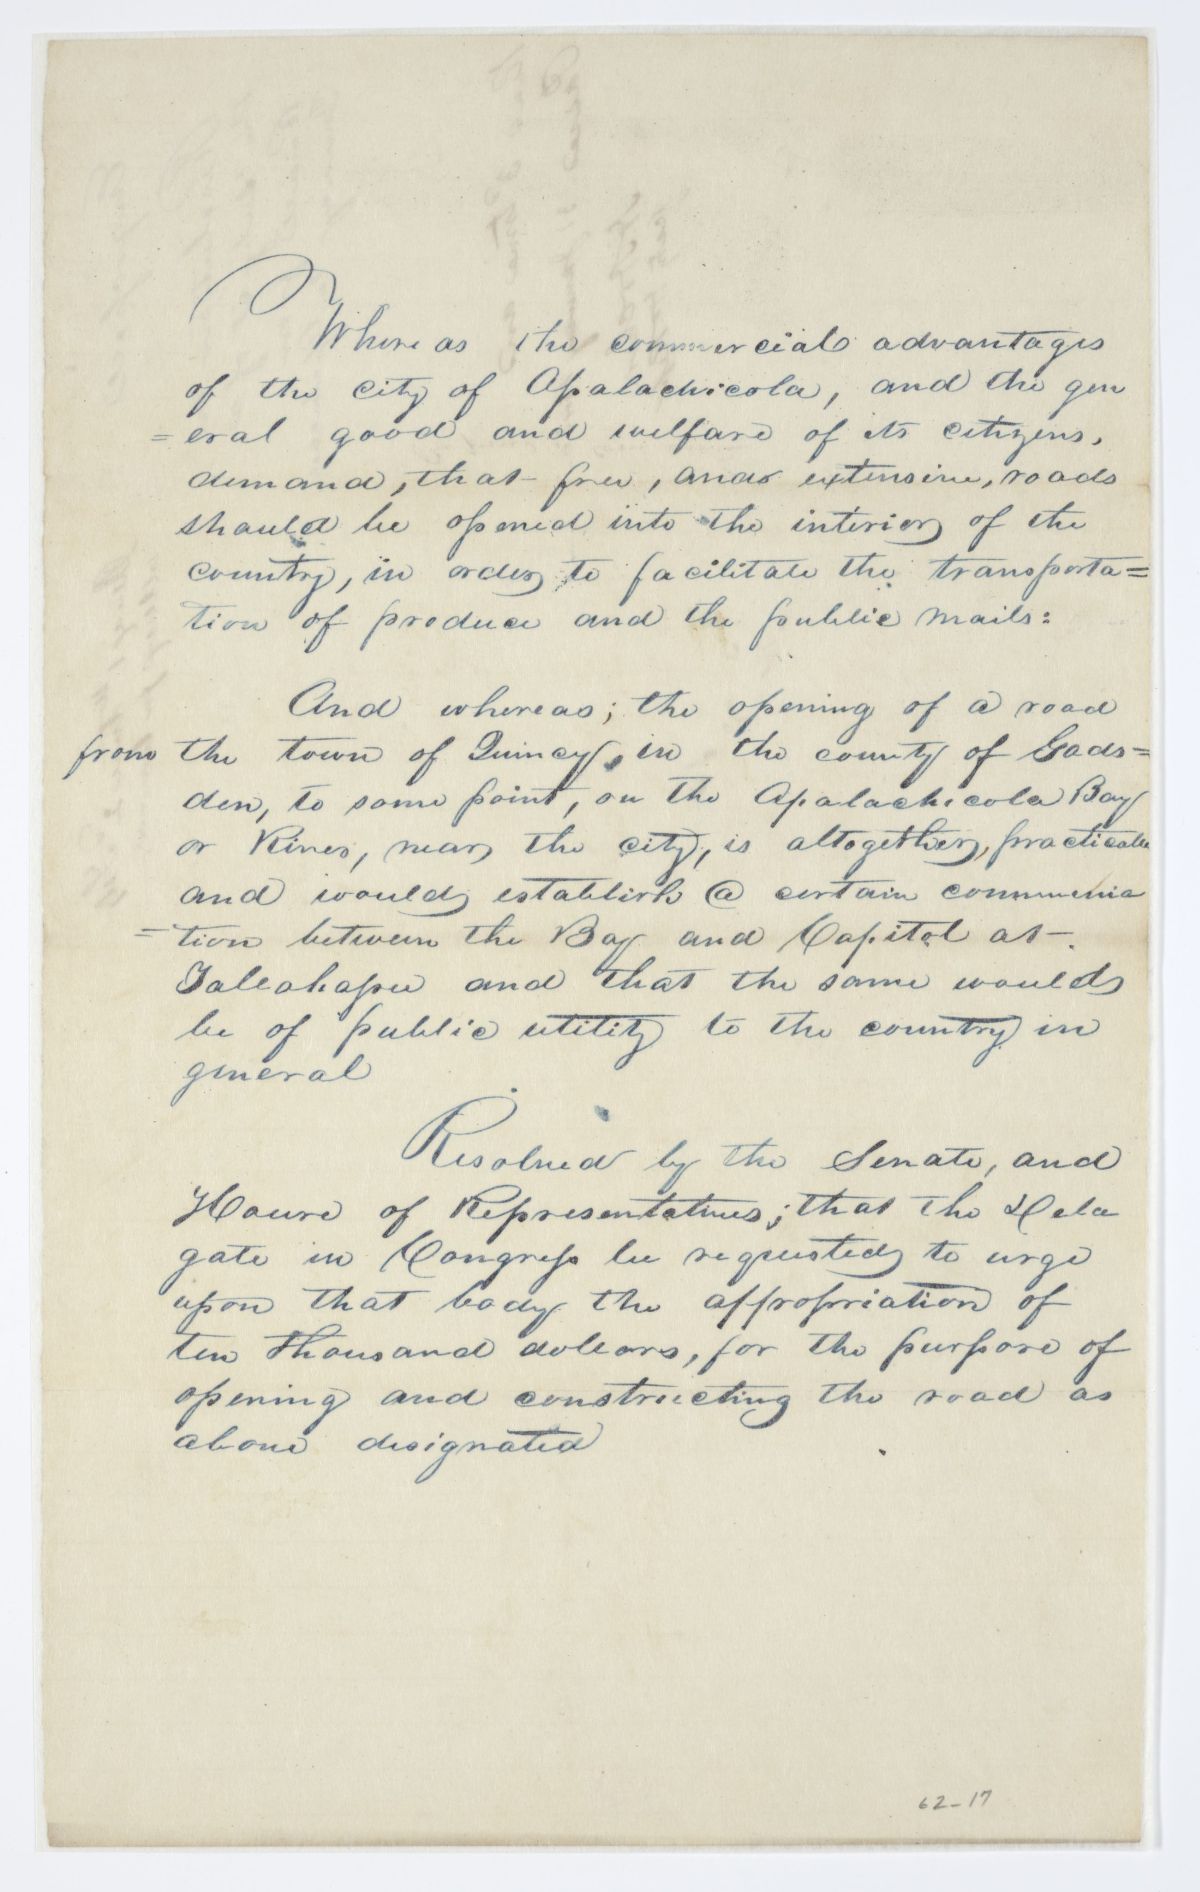 Whereas the commercial advantages
of the city of Apalachicola, and the gen
=eral good and welfare of its citizens,
demand, that free, and extensive, roads
should be opened into the interior of the
country, in order to facilitate the transporta=
tion of produce and the public mails:
And whereas; the opening of a road
from the town of Quincy, in the county of Gads=
den, to some point, on the Apalachicola Bay
or River, near the city, is altogether, practicable
and would establish a certain communica
=tion between the Bay and Capitol at
Tallahassee and that the same would
be of public utility to the country in
general
Resolved by the Senate, and
House of Representatives; that the Dela
gate in Congress be requested to urge
upon that body the appropriation of
ten thousand dollars, for the purpose of
opening and constructing the road as
above designated
62-17